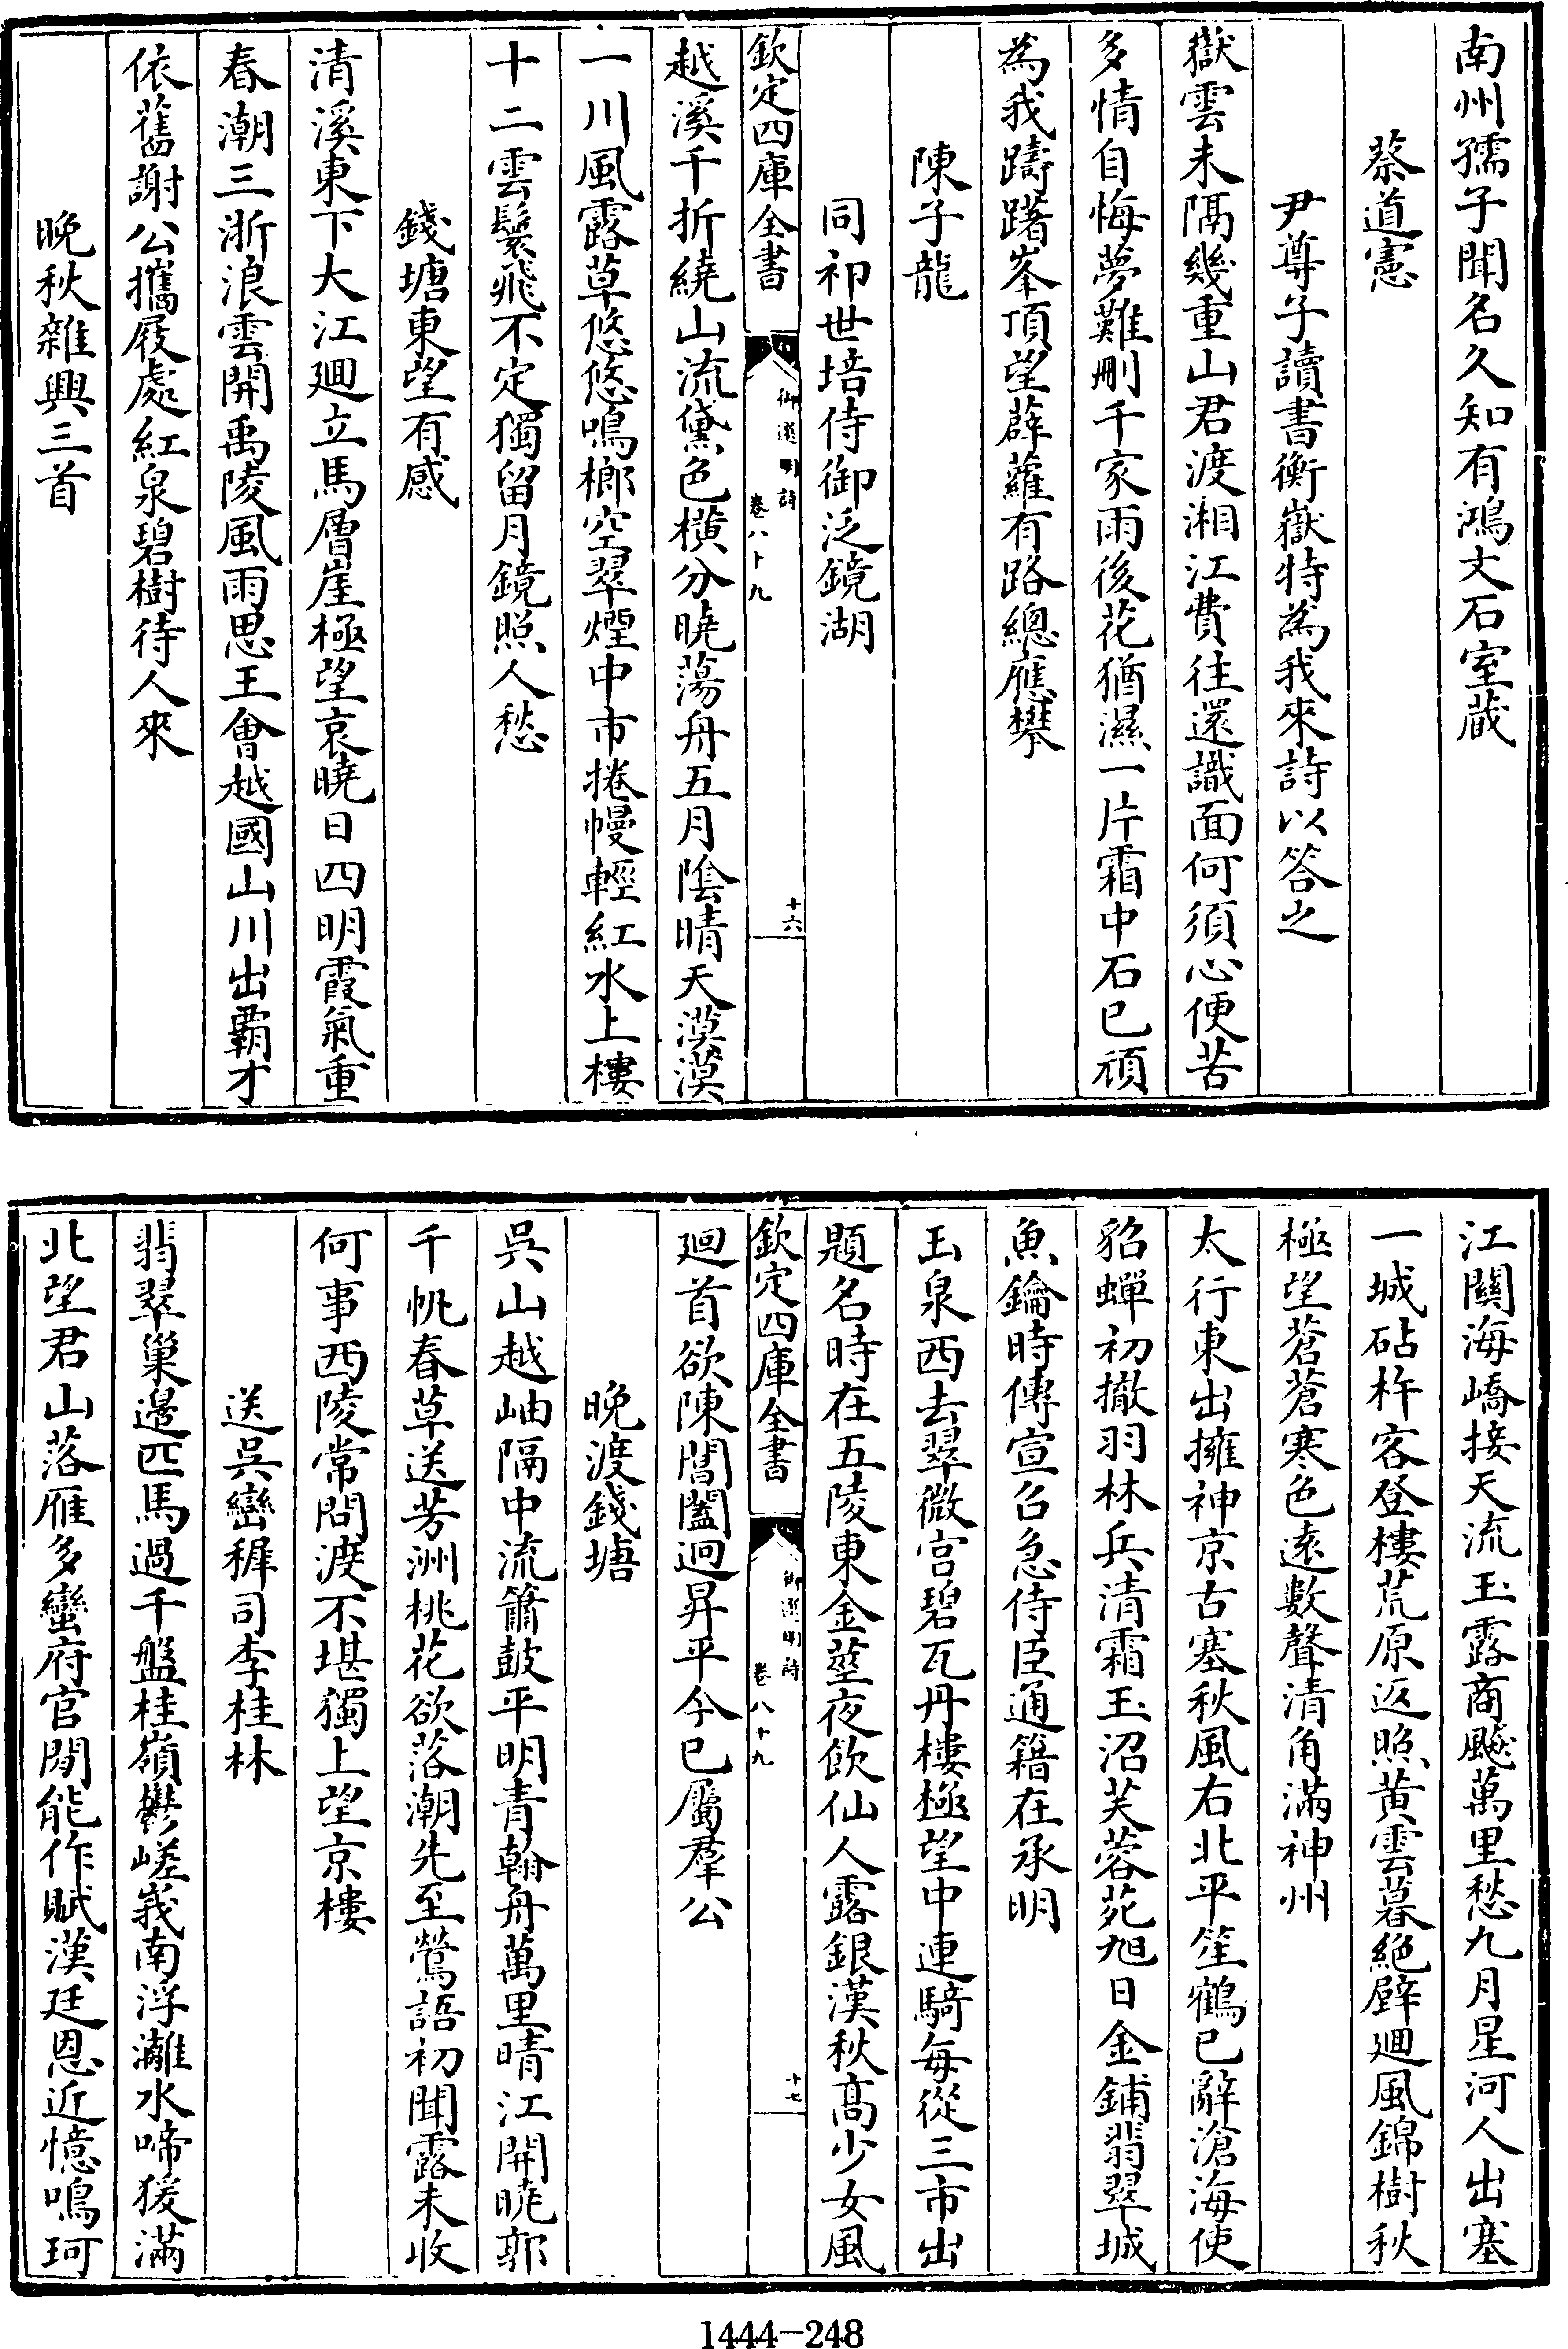 南州孺子聞名久知有鴻文石室蔵
蔡道憲
尹尊子讀書衡嶽特為我來詩以答之
嶽雲未隔幾重山君渡湘江費往還識面何須心便苦
多情自悔夢難刪千家雨後花猶濕一片霜中石已頑
為我躊躇峯頂望薜蘿有路總應攀
陳子龍
同祁世培侍御泛鏡湖
欽定四庫全書
御選明詩
卷八十九
十六
越溪千折繞山流黛色横分曉蕩舟五月陰晴天漠漠
一川風露草悠悠鳴榔空翠煙中市捲幔輕紅水上樓
十二雲鬟飛不定獨留月鏡照人愁
錢塘東望有感
清溪東下大江廻立馬層崖極望哀曉日四明霞氣重
春潮三浙浪雲開禹陵風雨思王會越國山川出霸才
依舊謝公攜屐處紅泉碧樹待人來
晚秋雜興三首
江關海嶠接天流玉露商飈萬里愁九月星河人出塞
一城砧杵客登樓荒原返照黄雲暮絕壁廻風錦樹秋
極望蒼蒼寒色遠數聲清角滿神州
太行東出擁神京古塞秋風右北平笙鶴已辭滄海使
貂蟬初撤羽林兵清霜玉沼芙蓉苑旭日金鋪翡翠城
魚鑰時傳宣召急侍臣通籍在承明
玉泉西去翠微宫碧瓦丹樓極望中連騎每從三市出
題名時在五陵東金莖夜飲仙人露銀漢秋髙少女風
欽定四庫全書
御選明詩
卷八十九
十七
廻首欲陳閶闔迥昇平今已屬羣公
晚渡錢塘
吳山越岫隔中流簫鼓平明青翰舟萬里晴江開曉郭
千帆春草送芳洲桃花欲落潮先至鶯語初聞露未收
何事西陵常問渡不堪獨上望京樓
送吳巒穉司李桂林
翡翠巢邉匹馬過千盤桂嶺鬱嵯峩南浮灕水啼猨滿
北望君山落雁多蠻府官閒能作賦漢廷恩近憶鳴珂
1444-248